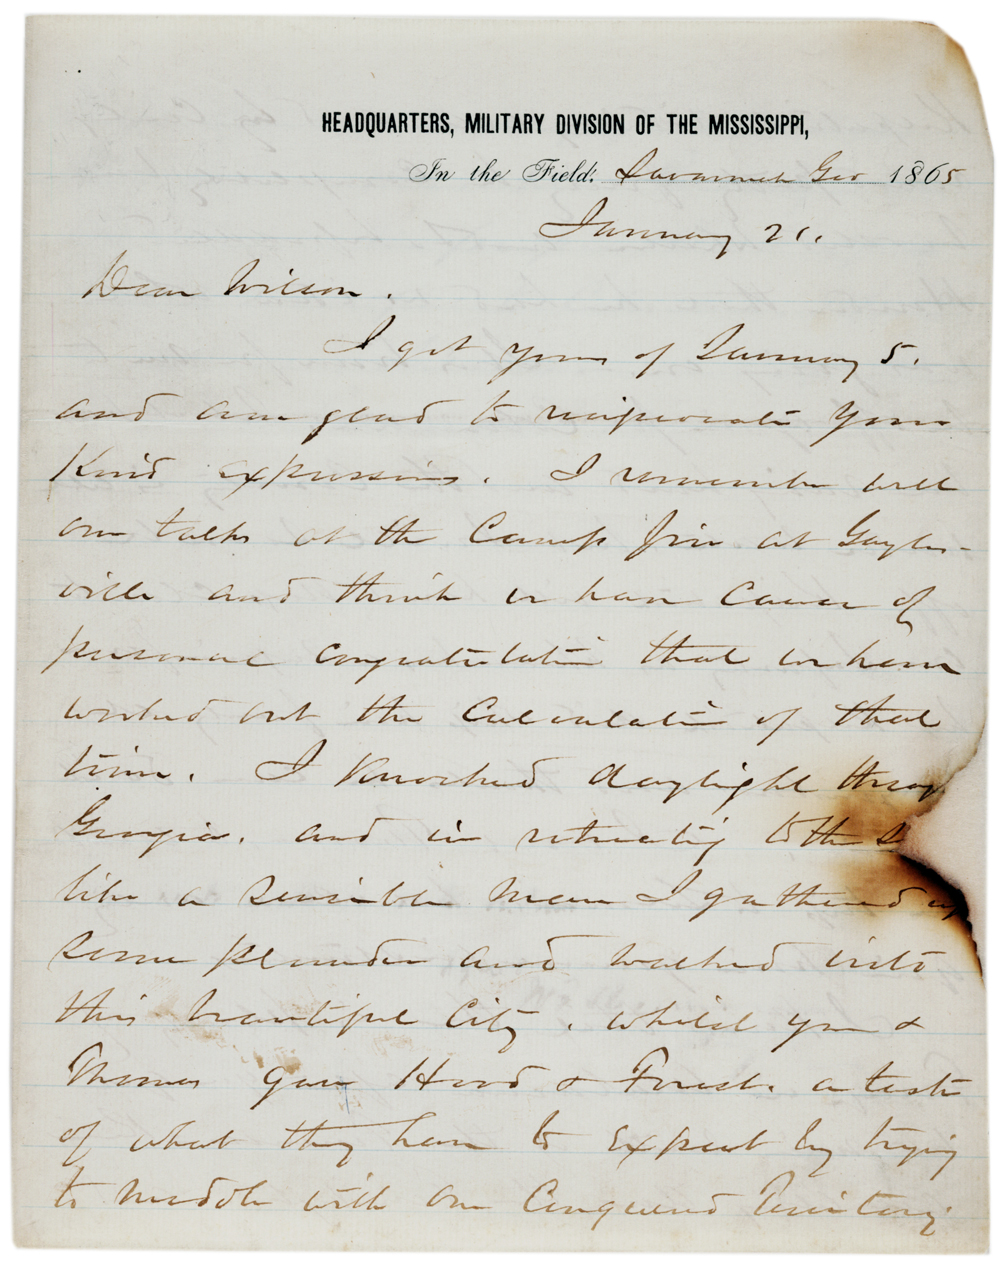 HEADQUARTERS, MILITARY DIVISION OF THE MISSISSIPPI,
In the Field, Savannah Geo 1865
January 21.
Dear Wilson.
I got yours of January 5.
and am glad to reciprocate your
Kind expressions. I remember well
our talks at the Camp fire at Gayles-
ville and think we have Cause of
personal congratulation that we have
worked out the Calculation of that
time. I Knocked daylight throug
Georgia, and in retreating to the S
like a sensible man I gathered up
some plunder and walked into
this beautiful City, whilst you &
Thomas gave Hood & Forrest, a taste
of what they have to Expect by trying
to meddle with our Conquered Territory